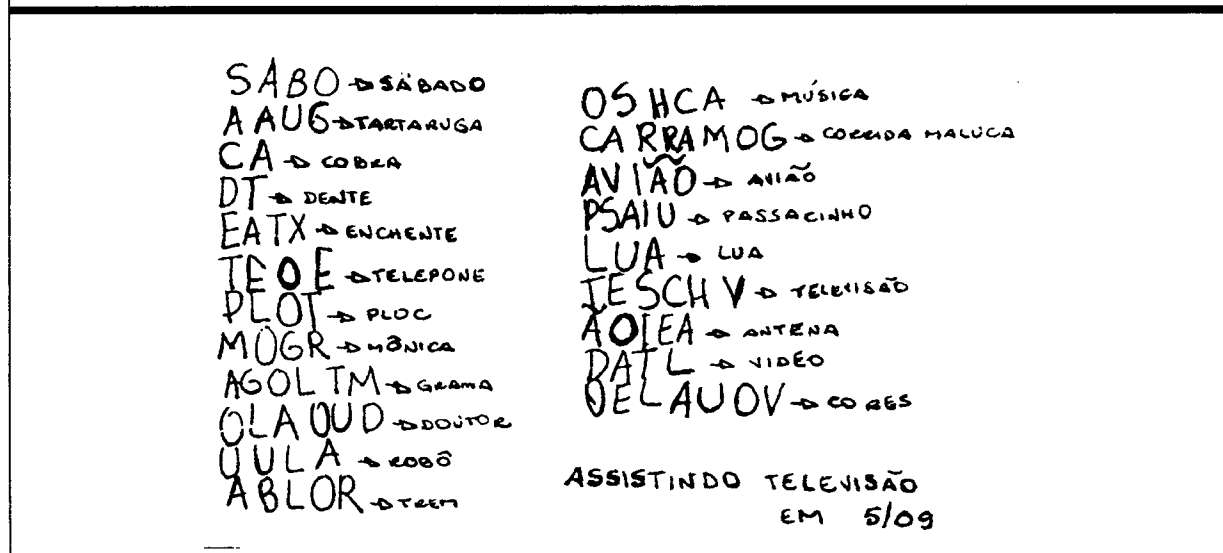 SABO → SÁBADO
AAUG → TARTARUGA
CA → COBRA
DT → DENTE
EATX → ENCHENTE
TEOE → TELEPONE
PLOT → PLOC
MOGR → MÔNICA
AGOLTM → GRAMA
OLAOUD → DOUTOR
UULA → ROBÔ
ABLOR → TREM
OSHCA → MÚSICA
CARRAMOG → CORRIDA MALUCA
AVIÃO → AVIÃO
PSAIU → PASSACINHO
LUA → LUA
TESCHV → TELEVISÃO
ÃOIEA → ANTENA
DATL → VIDEO
OELAUOV → CORES
ASSISTINDO TELEVISÃO
EM 5/09